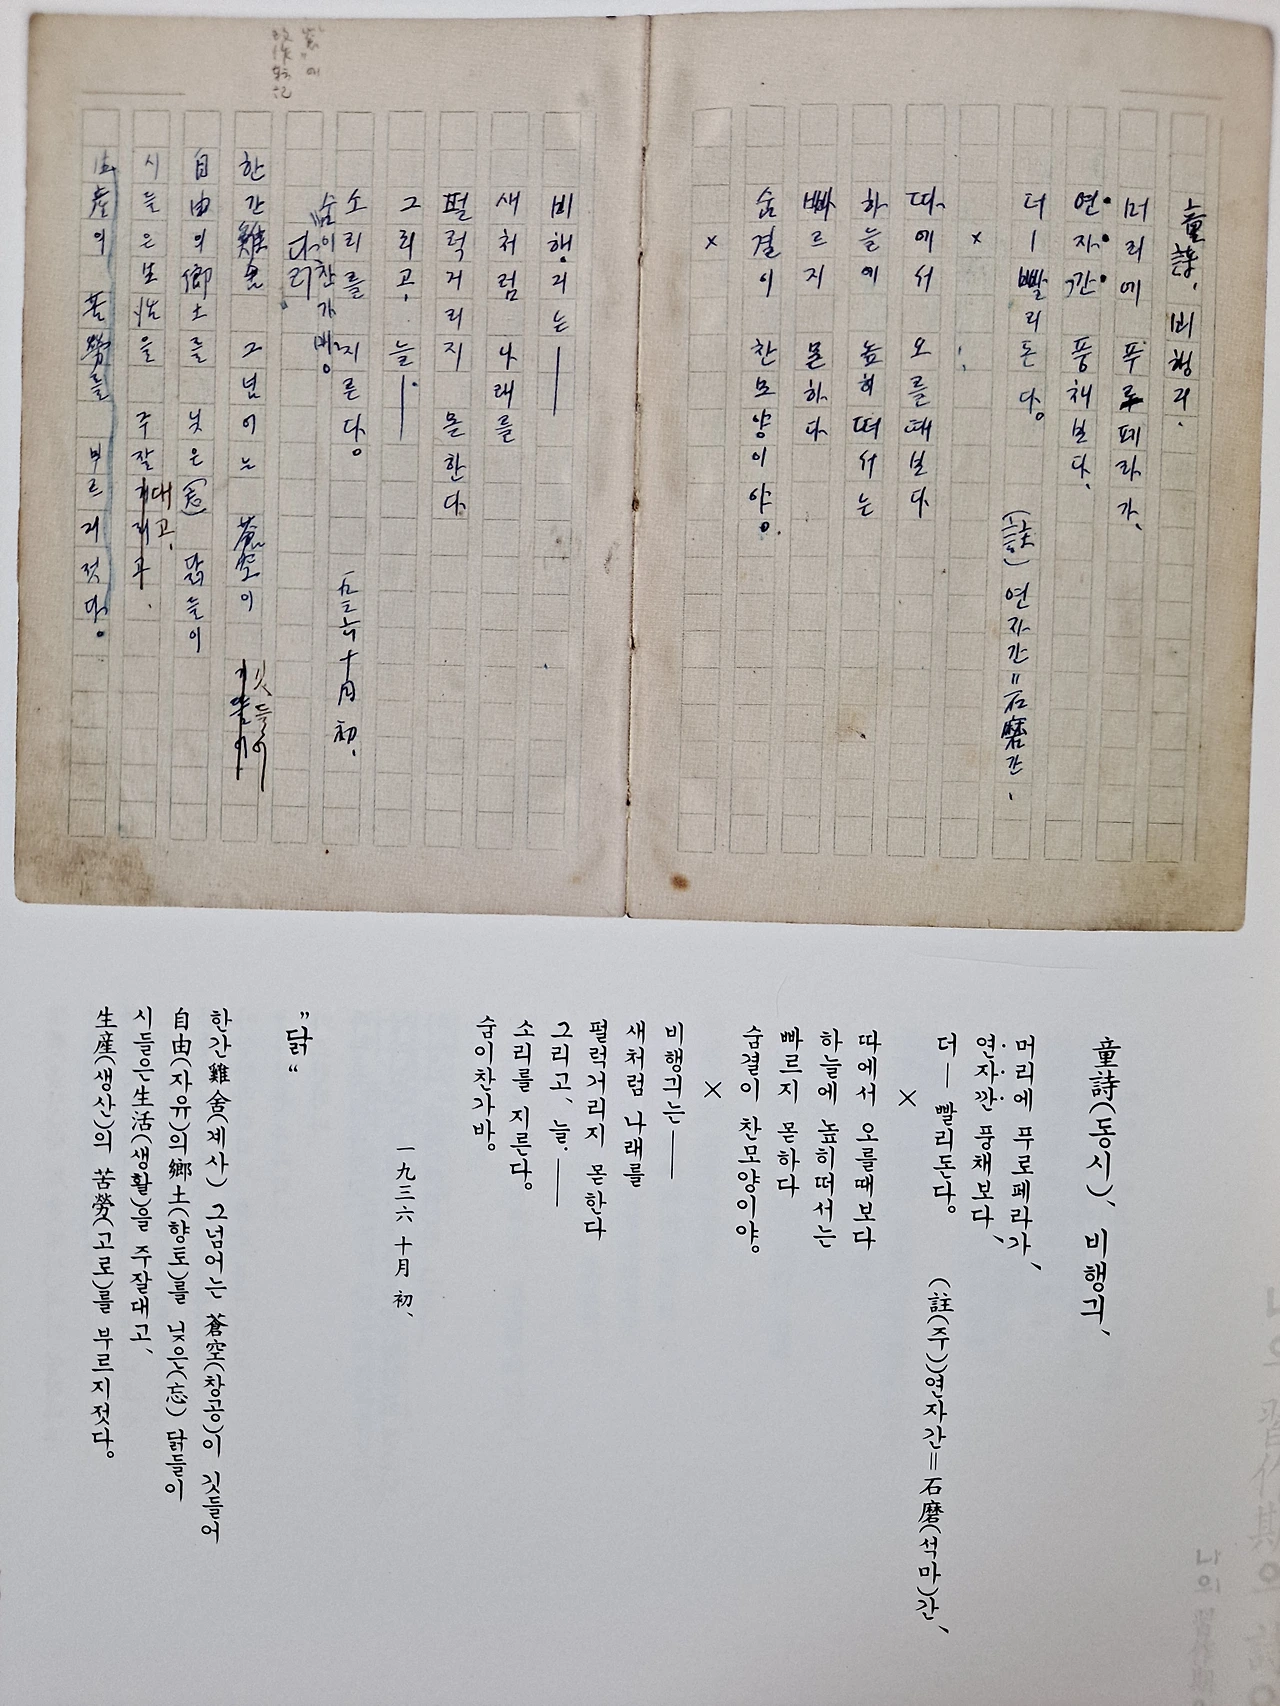 童詩、비행긔、
머리에 푸로페라가、
연자깐 풍채보다、
더ㅡ빨리돈다。 (註)연자간=石磨간、
×
따에서 오를때보다
하늘에 높히떠서는
빠르지 몯하다
숨결이 찬모양이야。
×
비행긔는——
새처럼 나래를
펄럭거리지 몯한다
그리고、늘——
소리를 지른다。 一九三六 十月 初、
숨이찬가바。
닭
한간鷄舍 그넘어는 蒼空이 깃들어
自由의鄕土를 닞은(忘) 닭들이
시들은生活을 주잘대고、
生産의 苦勞를 부르지젓다。
童詩(동시)、비행긔、
머리에 푸로페라가、
연자깐 풍채보다、
더—빨리돈다。 (註(주))연자간=石磨(석마)간、
×
따에서 오를때보다
하늘에 높히떠서는
빠르지 몯하다
숨결이 찬모양이야。
×
비행긔는——
새처럼 나래를
펄럭거리지 몯한다
그리고、늘、——
소리를 지른다。
숨이찬가바。
一九三六 十月 初、
"닭"
한간雞舍(계사) 그넘어는 蒼空(창공)이 깃들어
自由(자유)의鄕土(향토)를 닞은(忘) 닭들이
시들은生活(생활)을 주잘대고、
生産(생산)의 苦勞(고로)를 부르지젓다。